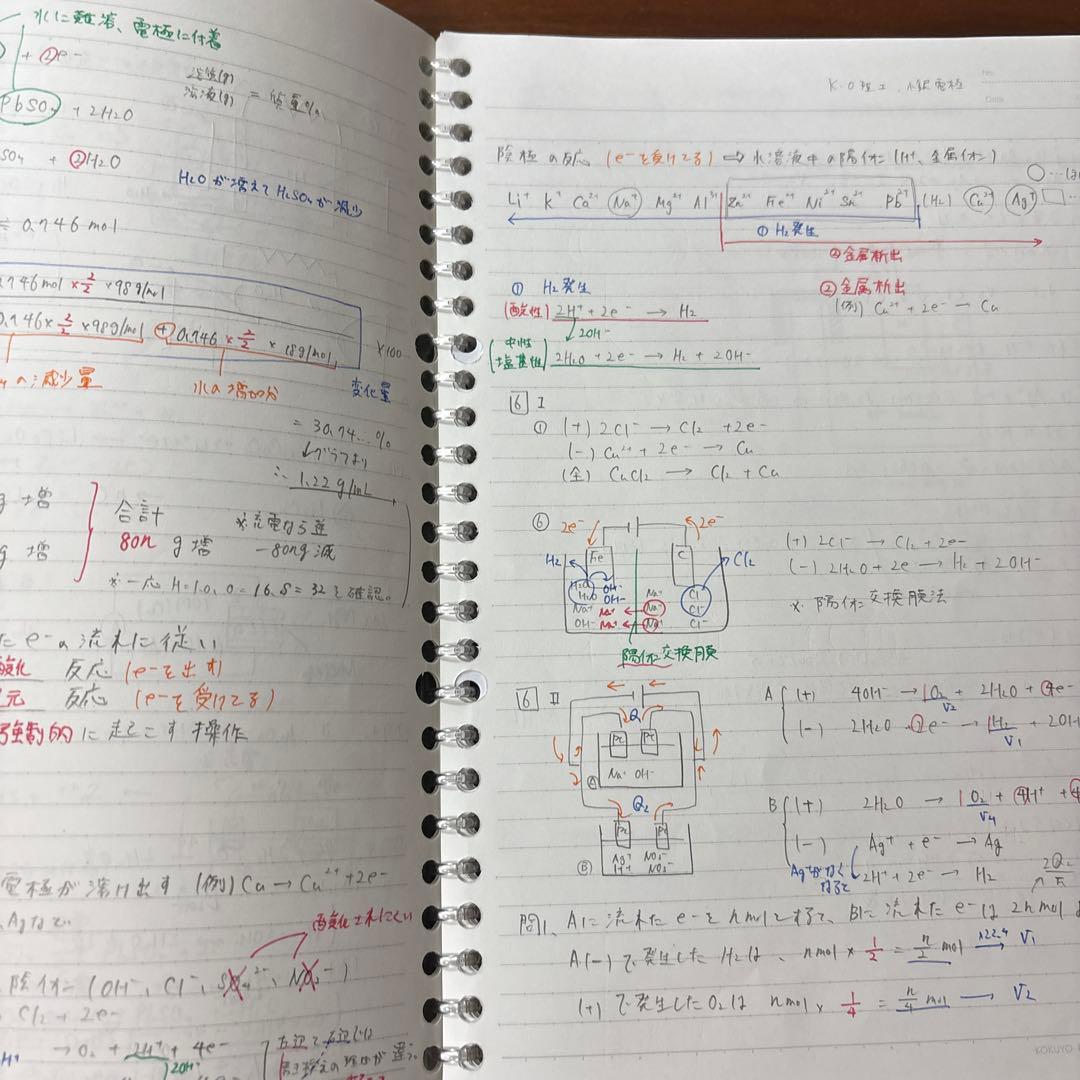 水に難溶、電極に付着
+ ②e-
溶質(g)
溶液(g) = 質量%
PbSO4 + 2H2O
SO4 + ②H2O
H2Oが増えてH2SO4が減少
≒ 0.746 mol
.746 mol × 2/2 × 98g/mol
0.746 × 2/2 × 98g/mol + 0.746 × 2/2 × 18g/mol × 100
の減少量
水の増加分
変化量
= 30.74...%
↓グラフより
∴ 1.22 g/mL
g 増
g 増
合計
80n g増
※充電なら逆
-80ng減
※一応 H=1.0, O=16, S=32を確認。
たe-の流れに従い
酸化 反応 (e-を出す)
元 反応 (e-を受けてる)
強制的に起こす操作
電極が溶け出す (例) Cu → Cu2+ + 2e-
Agなど
酸化されにくい
陰イオン (OH-、Cl-、SO4 2-、NO3-)
Cl2 + 2e-
→ O2 + 2H+ + 4e-
2OH-
左辺と右辺には
K.O理工
陰極の反応 (e-を受けてる) ⇒ 水溶液中の陽イオン (H+、金属イオン)
Li+ K+ Ca2+ Na+ Mg2+ Al3+ Zn2+ Fe2+ Ni2+ Sn2+ Pb2+ (H2) Cu2+ Ag+
① H2発生
②金属析出
① H2発生
②金属析出
(酸性) 2H+ + 2e- → H2
(例) Cu2+ + 2e- → Cu
2OH-
(中性 塩基性) 2H2O + 2e- → H2 + 2OH-
6 I
① (+) 2Cl- → Cl2 + 2e-
(-) Cu2+ + 2e- → Cu
(全) CuCl2 → Cl2 + Cu
⑥ 2e- 2e-
H2 Fe C Cl2
H2O OH- Na+ Cl-
H2O OH- Na+ Cl-
Na+ Na+ Na+ Cl-
OH- Na+
陽イオン交換膜
(+) 2Cl- → Cl2 + 2e-
(-) 2H2O + 2e → H2 + 2OH-
※ 陽イオン交換膜法
6 II
Q1
Pt Pt
Ⓐ Na+ OH-
Q2
Pt Pt
Ⓑ Ag+ NO3-
H+ NO3-
A (+) 4OH- → 1O2 + 2H2O + ④e-
V2
(-) 2H2O ②e- → 1H2 + 2OH
V1
B (+) 2H2O → 1O2 + ④H+ +
V4
(-) Ag+ + e- → Ag
Ag+がなくなると
2H+ + 2e- → H2
2Q2
問1、Aに流れたe-をn molとすると、Bに流れたe-は2n mol
A(-)で発生したH2は、n mol × 1/2 = n/2 mol ×22.4 → V1
(+)で発生したO2は n mol × 1/4 = n/4 mol → V2
KOKUYO